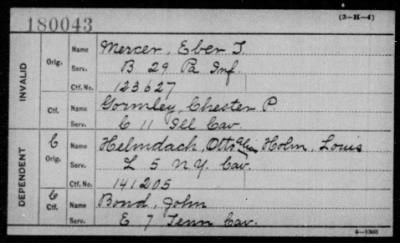 180043
(3-H-4)
INVALID
Orig.
Name Mercer, Eber T.
Serv. B 29 Pa Inf.
Ctf. No. 123627
Ctf.
Name Gormley, Chester P.
Serv. C 11 Ill Cav.
DEPENDENT
C
Orig.
Name Helmdach, Otto Alias Holm, Louis
Serv. L 5 N.Y. Cav.
Ctf. No. 141205
C
Ctf.
Name Bond, John
Serv. E 7 Tenn Cav.